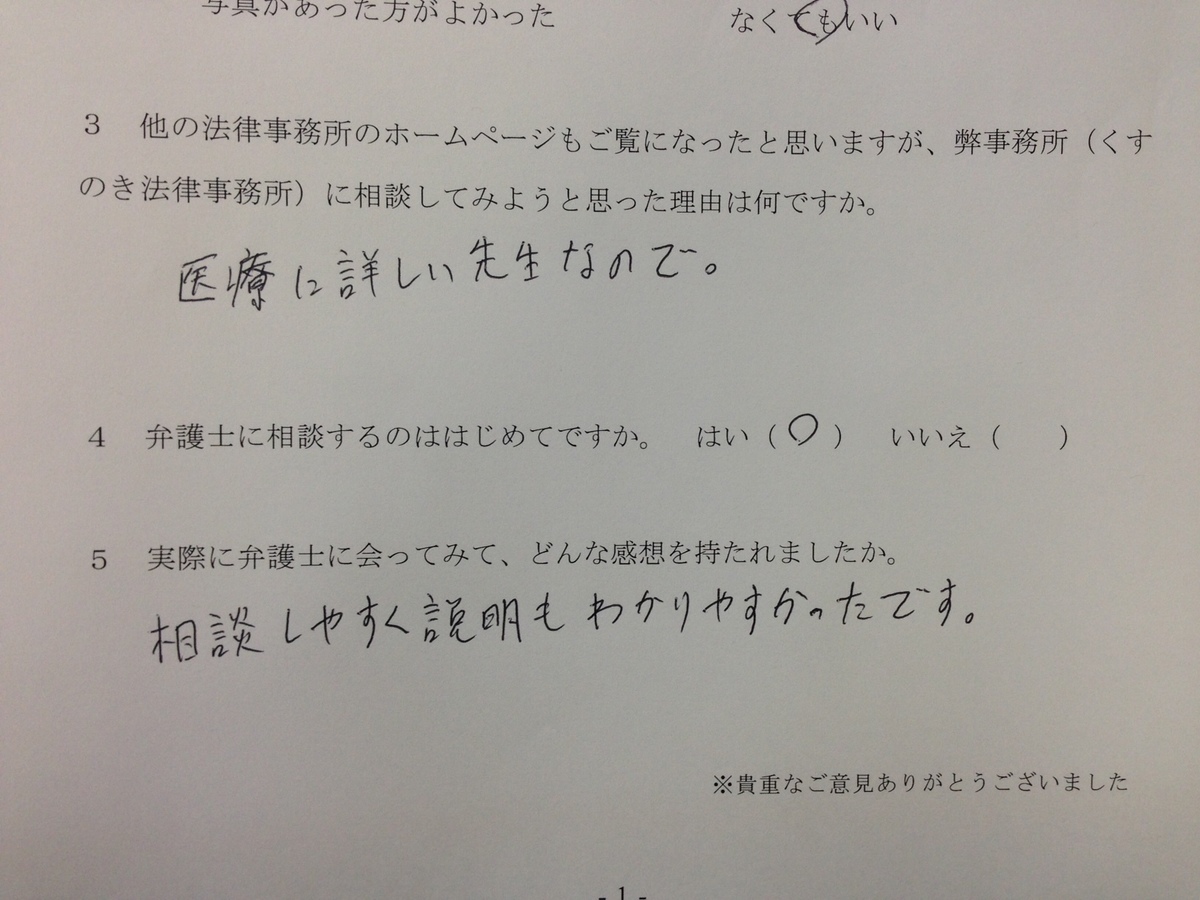 写真があった方がよかった　なくてもいい
3　他の法律事務所のホームページもご覧になったと思いますが、弊事務所（くす
のき法律事務所）に相談してみようと思った理由は何ですか。
医療に詳しい先生なので。
4　弁護士に相談するのははじめてですか。　はい（〇）　いいえ（　　）
5　実際に弁護士に会ってみて、どんな感想を持たれましたか。
相談しやすく説明もわかりやすかったです。
※貴重なご意見ありがとうございました
- 1 -